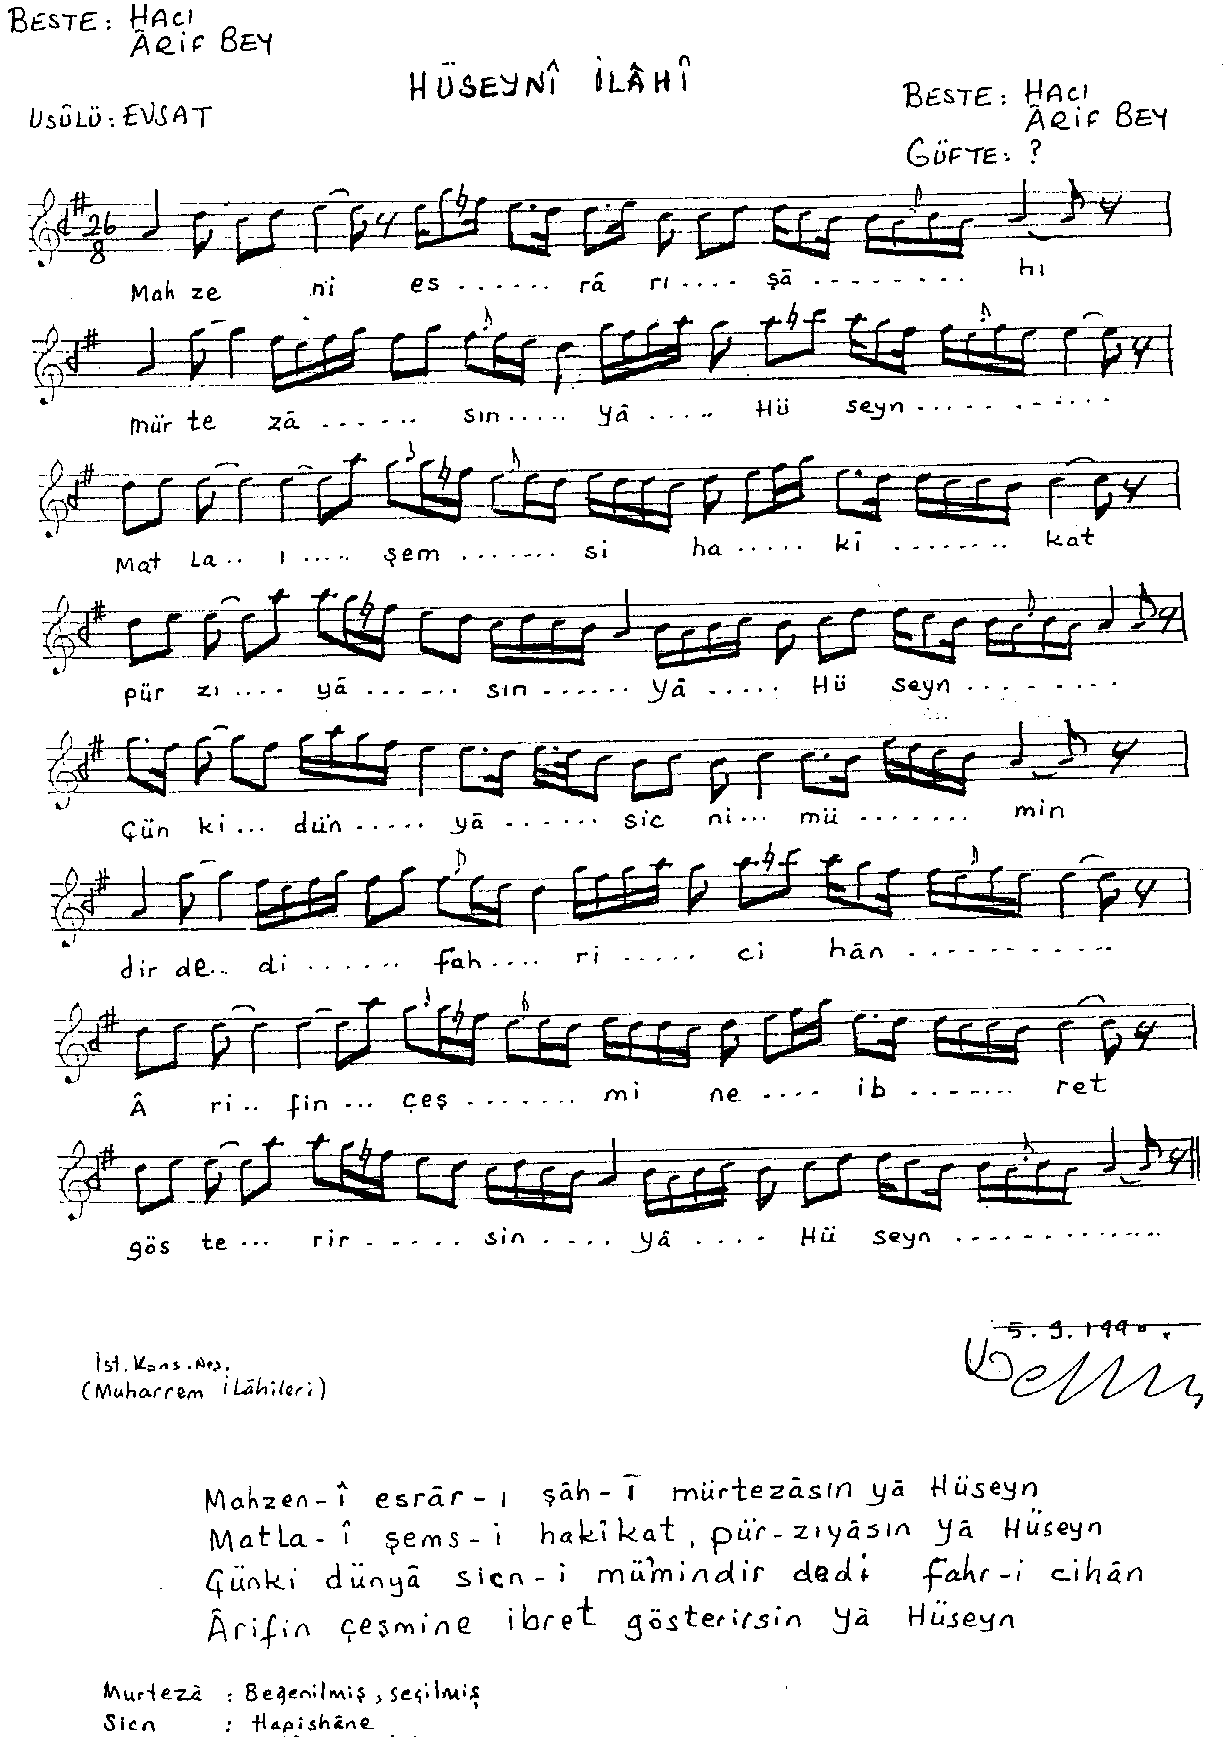 BESTE: HACI
ÂRİF BEY
HÜSEYNÎ İLÂHÎ
USÛLÜ: EVSAT
BESTE: HACI
ÂRİF BEY
GÜFTE: ?
26
8
Mah ze ni es ...... râ rı .... şâ ......... hı
mür te zâ ...... sın ..... yâ ..... Hü seyn ............
Mat La.. ı ..... şem ....... si ha ..... kî ........ kat
pür zı .... yâ ...... sın ...... yâ ..... Hü seyn .........
Çün ki... dün ..... yâ ...... sic ni... mü ....... min
dir de.. di ...... fah.... ri ..... ci hân ...........
 ri.. fin ... çeş ....... mi ne .... ib ....... ret
gös te... rir ..... sin .... yâ .... Hü seyn .............
5.9.1990.
İst. Kons. Neş.
(Muharrem ilâhileri)
Mahzen-î esrâr-ı şâh-î mürtezâsın yâ Hüseyn
Matla-î şems-i hakîkat, pür-zıyâsın yâ Hüseyn
Çünki dünyâ sicn-i mü'mindir dedi fahr-i cihân
Ârifin çeşmine ibret gösterirsin yâ Hüseyn
Murtezâ : Beğenilmiş, seçilmiş
Sicn : Hapishâne